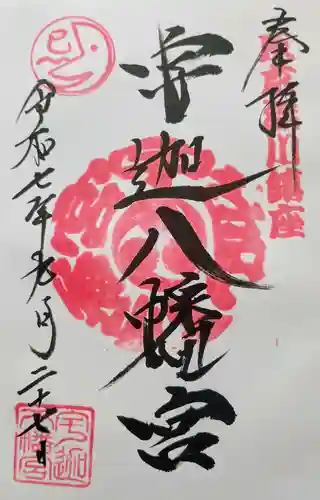 奉拝
宇迦八幡宮
令和七年九月二十七日
宇迦八幡宮